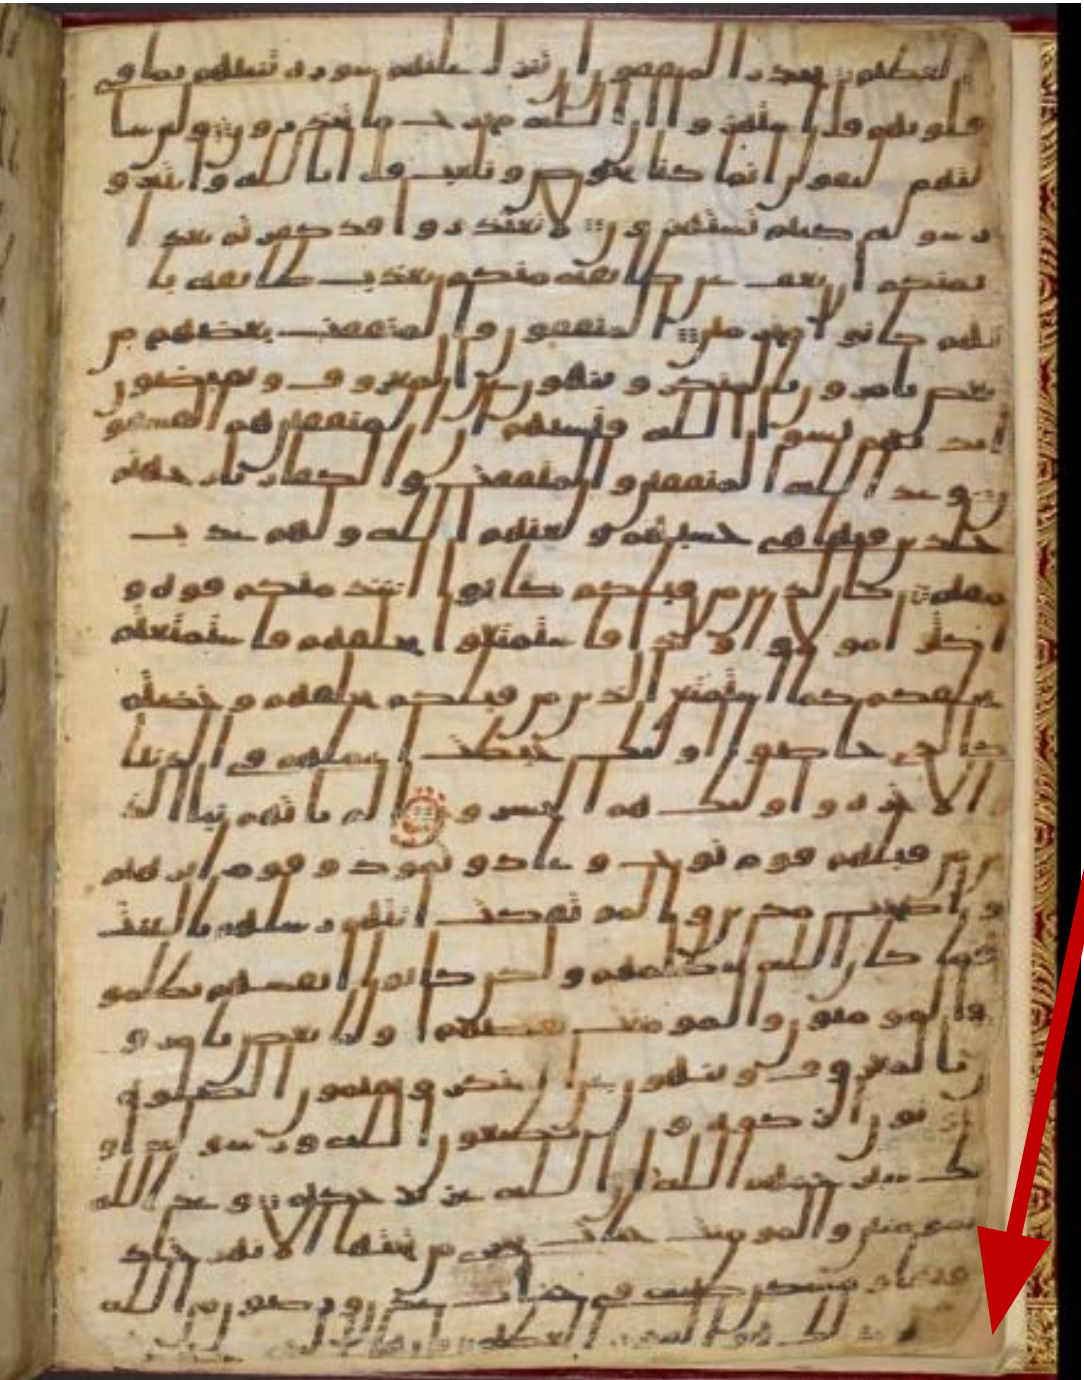 العظيم يحذر المنفقون ان تنزل عليهم سورة تنبئهم بما في
قلوبهم قل استهزوا ان الله مخرج ما تحذرون ولئن سا
لتهم ليقولن انما كنا نخوض ونلعب قل ابالله وايته و
رسوله كنتم تستهزون لا تعتذروا قد كفرتم بعد ا
يمنكم ان نعف عن طائفة منكم نعذب طائفة با
نهم كانوا مجرمين المنفقون والمنفقت بعضهم من
بعض يامرون بالمنكر وينهون عن المعروف ويقبضون
ايديهم نسوا الله فنسيهم ان المنفقين هم الفسقو
ن وعد الله المنفقين والمنفقت والكفار نار جهنم
خلدين فيها هي حسبهم ولعنهم الله ولهم عذاب
مقيم كالذين من قبلكم كانوا اشد منكم قوة و
اكثر امولا واولدا فاستمتعوا بخلقهم فاستمتعتم
بخلقكم كما استمتع الذين من قبلكم بخلقهم وخضتم
كالذي خاضوا اولئك حبطت اعملهم في الدنيا
والاخرة واولئك هم الخسرون الم ياتهم نبا الذ
ين من قبلهم قوم نوح وعاد وثمود وقوم ابرهيم
واصحب مدين والموتفكت اتتهم رسلهم بالبينت
فما كان الله ليظلمهم ولكن كانوا انفسهم يظلمو
ن والمومنون والمومنت بعضهم اوليا بعض يامرو
ن بالمعروف وينهون عن المنكر ويقيمون الصلوة
ويوتون الزكوة ويطيعون الله ورسوله او
لئك سيرحمهم الله ان الله عزيز حكيم وعد الله
المومنين والمومنت جنت تجري من تحتها الانهر خلد
ين فيها ومسكن طيبة في جنت عدن ورضون من الله
اكبر ذلك هو الفوز العظيم